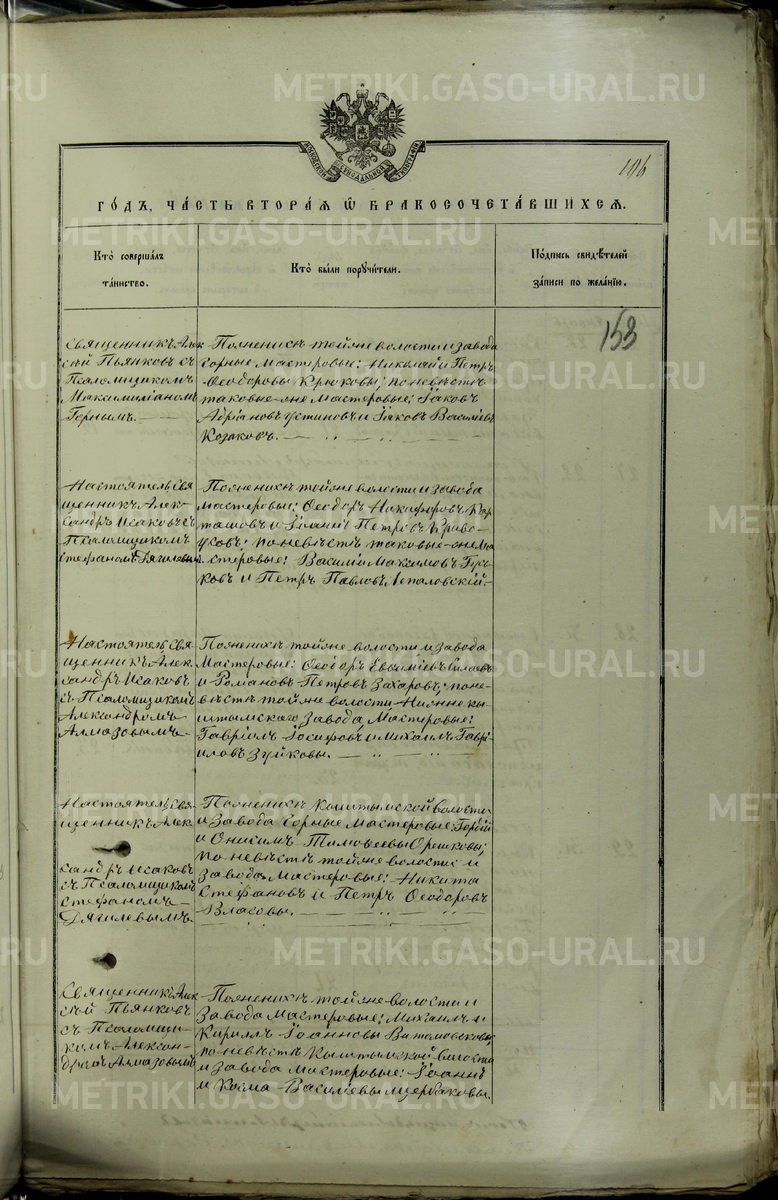 METRIKI.GASO-URAL.RU
106
МОСКОВСКОЙ СѴНОДАЛЬНОЙ ТИПОГРАФІИ
ГОДЪ, ЧАСТЬ ВТОРАЯ Ѡ БРАКОСОЧЕТАВШИХСЯ.
Кто совершалъ таинство.
Кто были поручители.
Подпись свидѣтелей записи по желанію.
153
Священникъ Алек
сѣй Пьянковъ съ
Псаломщикомъ
Максимиліаномъ
Горнымъ.
По женихѣ той же волости и завода
Горные Мастеровые: Николай и Петръ
Ѳеодоровы Крюковы; по невѣстѣ
таковые-же Мастеровые: Іаковъ
Адріановъ Устиновъ и Іаковъ Василіевъ
Козаковъ.
Настоятель Свя
щенникъ Алек
сандръ Исаковъ съ
Псаломщикомъ
Стефаномъ Дягилевымъ
По женихѣ той же волости и завода
мастеровые: Ѳеодоръ Никифоровъ Кар
ташовъ и Іоаннъ Петровъ Криво
усовъ; по невѣстѣ таковые-же Ма
стеровые: Василій Максимовъ Гусь
ковъ и Петръ Павловъ Лепаловскій.
Настоятель Свя
щенникъ Алек
сандръ Исаковъ
съ Псаломщикомъ
Александромъ
Алмазовымъ
По женихѣ той же волости и завода
Мастеровые: Ѳеодоръ Евѳиміевъ
и Романовъ Петровъ Захаровъ; по не
вѣстѣ той же волости Нижне Кы
штымскаго Завода Мастеровые:
Гавріилъ Іосифовъ и Михаилъ Гаврі
иловъ Зуйковы.
Настоятель Свя
щенникъ Алек
сандръ Исаковъ
съ Псаломщикомъ
Стефаномъ
Дягилевымъ.
По женихѣ Кыштымской волости
и Завода Горные Мастеровые: Гордій
и Онисимъ Тимоѳеевы Орешковы;
по невѣстѣ той же волости и
Завода Мастеровые: Никита
Стефановъ и Петръ Ѳеодоровъ
Власовы.
Священникъ Алек
сѣй Пьянковъ
съ Псаломщи
комъ Алексан-
дромъ Алмазовымъ
По женихѣ той же волости и
Завода Мастеровые: Михаилъ и
Кириллъ Іоанновы
по невѣстѣ Кыштымской волости
и Завода Мастеровые: Іоаннъ
и Косма Василіевы Щербаковы.